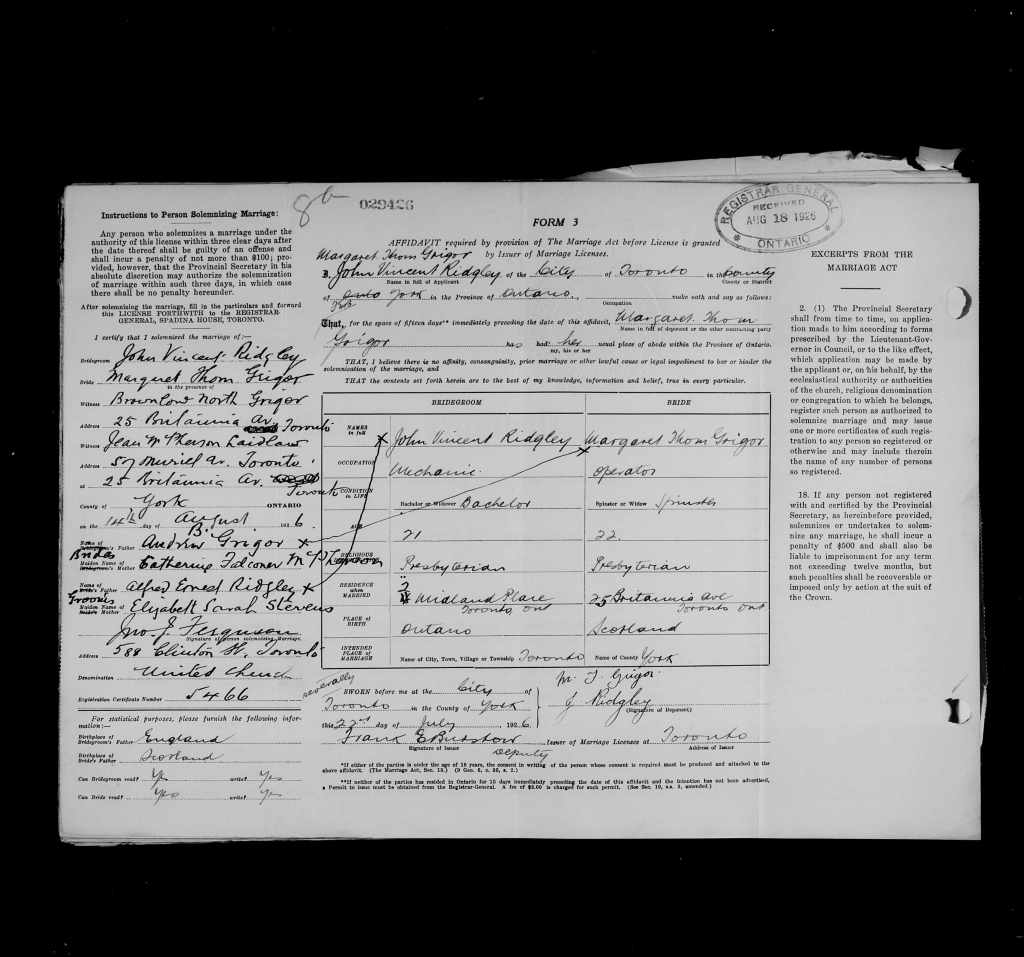 8
029426
REGISTRAR GENERAL
RECEIVED
AUG 18 1926
ONTARIO
Instructions to Person Solemnizing Marriage:
Any person who solemnizes a marriage under the
authority of this license within three clear days after
the date thereof shall be guilty of an offense and
shall incur a penalty of not more than $100; pro-
vided, however, that the Provincial Secretary in his
absolute discretion may authorize the solemnization
of marriage within such three days, in which case
there shall be no penalty hereunder.
After solemnizing the marriage, fill in the particulars and forward
this LICENSE FORTHWITH to the REGISTRAR-
GENERAL, SPADINA HOUSE, TORONTO.
I certify that I solemnized the marriage of:—
Bridegroom John Vincent Ridgley
Bride Margaret Thom Grigor
in the presence of
Witness Brownlow North Grigor
Address 25 Britannia Av. Toronto
Witness Jean McPherson Laidlaw
Address 57 Muriel Av. Toronto
at 25 Britannia Av. Toronto
County of York ONTARIO
on the 14th day of August 1926.
Name of Bride's Father Andrew B. Grigor x
Maiden Name of Mother Catherine Falconer
Name of Groom's Father Alfred Ernest Ridgley x
Maiden Name of Mother Elizabeth Sarah Stevens
Jno. J. Ferguson
Signature of person solemnizing Marriage.
Address 588 Clinton St. Toronto
Denomination United Church
Registration Certificate Number 5466
For statistical purposes, please furnish the following infor-
mation:—
Birthplace of Bridegroom's Father England
Birthplace of Bride's Father Scotland
Can Bridegroom read? Yes write? Yes
Can Bride read? Yes write? Yes
FORM 3
AFFIDAVIT required by provision of The Marriage Act before License is granted
by Issuer of Marriage Licenses.
Margaret Thom Grigor
I, John Vincent Ridgley of the City of Toronto in the County
Name in full of Applicant County or District
of York in the Province of Ontario, make oath and say as follows:
Occupation
That, for the space of fifteen days** immediately preceding the date of this affidavit, Margaret Thom
Name in full of deponent or the other contracting party
Grigor has had her usual place of abode within the Province of Ontario.
my, his or her
THAT, I believe there is no affinity, consanguinity, prior marriage or other lawful cause or legal impediment to bar or hinder the
solemnization of the marriage, and
THAT the contents set forth herein are to the best of my knowledge, information and belief, true in every particular.
BRIDEGROOM BRIDE
NAMES in full x John Vincent Ridgley Margaret Thom Grigor x
OCCUPATION Mechanic Operator
CONDITION IN LIFE Bachelor or Widower Bachelor Spinster or Widow Spinster
AGE 21 22.
RELIGIOUS Presbyterian Presbyterian
RESIDENCE when MARRIED 3 Midland Place Toronto, Ont 25 Britannia Ave Toronto Ont
PLACE of BIRTH Ontario Scotland
INTENDED PLACE of MARRIAGE Name of City, Town, Village or Township Toronto Name of County York
severally
SWORN before me at the City of
Toronto in the County of York
this 22nd day of July 1926
M. T. Grigor
J Ridgley
(Signature of Deponent)
Frank E Burstow Issuer of Marriage Licenses at Toronto
Signature of Issuer Deputy Address of Issuer
*If either of the parties is under the age of 18 years, the consent in writing of the person whose consent is required must be produced and attached to the
above affidavit. (The Marriage Act, Sec. 15.)
**If neither of the parties has resided in Ontario for 15 days immediately preceding the date of this affidavit and the intention has not been advertised,
a Permit to issue must be obtained from the Registrar-General. A fee of $5.00 is charged for such permit.
EXCERPTS FROM THE
MARRIAGE ACT
2. (1) The Provincial Secretary
shall from time to time, on applica-
tion made to him according to forms
prescribed by the Lieutenant-Gover-
nor in Council, or to the like effect,
which application may be made by
the applicant or, on his behalf, by the
ecclesiastical authority or authorities
of the church, religious denomination
or congregation to which he belongs,
register such person as authorized to
solemnize marriage and may issue
one or more certificates of such regis-
tration to any person so registered or
otherwise and may include therein
the name of any number of persons
so registered.
18. If any person not registered
with and certified by the Provincial
Secretary, as hereinbefore provided,
solemnizes or undertakes to solem-
nize any marriage, he shall incur a
penalty of $500 and shall also be
liable to imprisonment for any term
not exceeding twelve months, but
such penalties shall be recoverable or
imposed only by action at the suit of
the Crown.